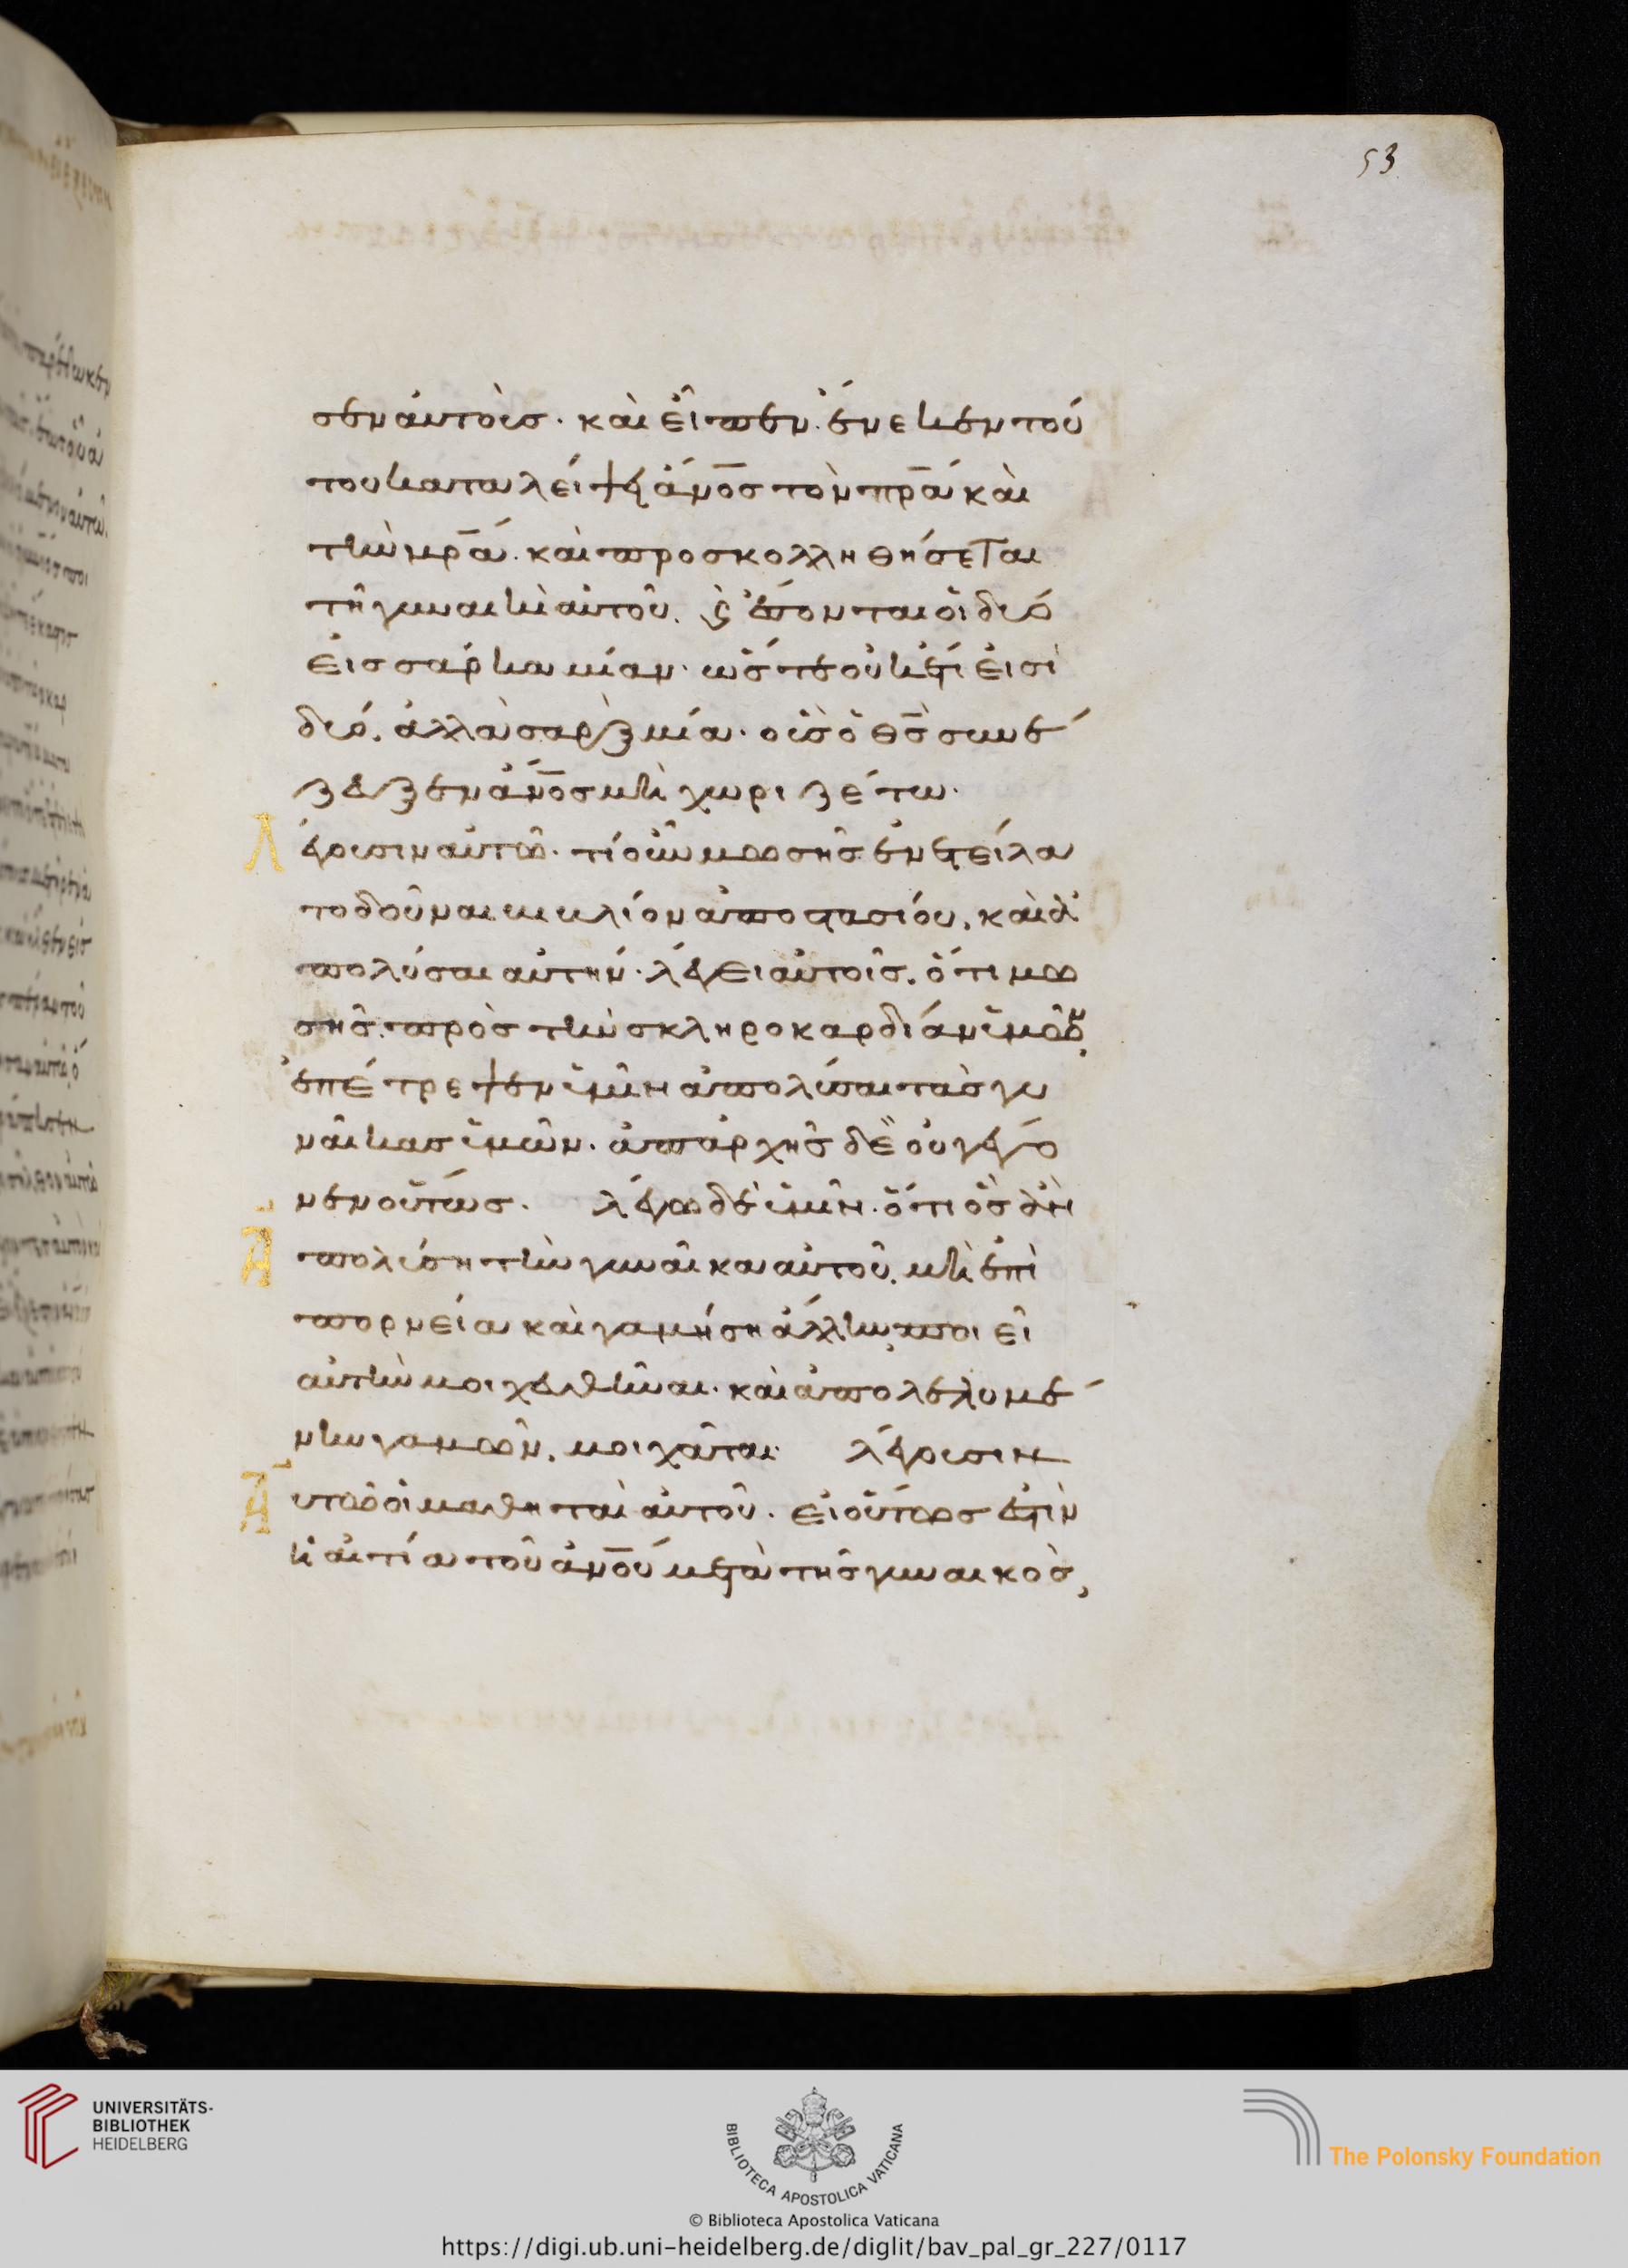 53
σεν αὐτοὺσ. καὶ εἶπεν. ἕνεκεν τού
του καταλείψει ἄν̅οσ τὸν πρ̅α καὶ
τὴν μρ̅α. καὶ προσκολληθήσεται
τῆ γυναικὶ αὐτοῦ. ϗ ἔσονται οἱ δύο
εἰσ σάρκα μίαν. ὥστε οὐκέτι εἰσὶ
δύο. ἀλλὰ σὰρξ μία. ὃ οὖν ὁ θσ̅ συνέ
ζευξεν ἄν̅οσ μὴ χωριζέτω.
Λέγουσιν αὐτῶ. τί οὖν μωσῆσ ἐνετείλα
το δοῦναι βιβλίον ἀποστασίου. καὶ ἀ
πολύσαι αὐτήν. λέγει αὐτοῖσ. ὅτι μω
σῆσ. πρὸσ τὴν σκληροκαρδίαν ὑμῶν,
ἐπέτρεψεν ὑμῖν ἀπολύσαι τὰσ γυ
ναῖκασ ὑμῶν. ἀπαρχῆσ δὲ οὐ γέγο
νεν οὕτωσ. λέγω δὲ ὑμῖν. ὅτι ὃσ ἂν
Ἀπολύση τὴν γυναῖκα αὐτοῦ. μὴ ἐπὶ
πορνεία καὶ γαμήση ἄλλην, ποιεῖ
αὐτὴν μοιχευθῆναι. καὶ ἀπολελυμέ
νην γαμῶν, μοιχᾶται. λέγουσιν
Αὐτῶ οἱ μαθηταὶ αὐτοῦ. εἰ οὕτωσ ἐστὶν
ἡ αἰτία τοῦ ἀν̅ου μετὰ τῆσ γυναικὸσ,
UNIVERSITÄTS-
BIBLIOTHEK
HEIDELBERG
BIBLIOTECA APOSTOLICA VATICANA
The Polonsky Foundation
© Biblioteca Apostolica Vaticana
https://digi.ub.uni-heidelberg.de/diglit/bav_pal_gr_227/0117